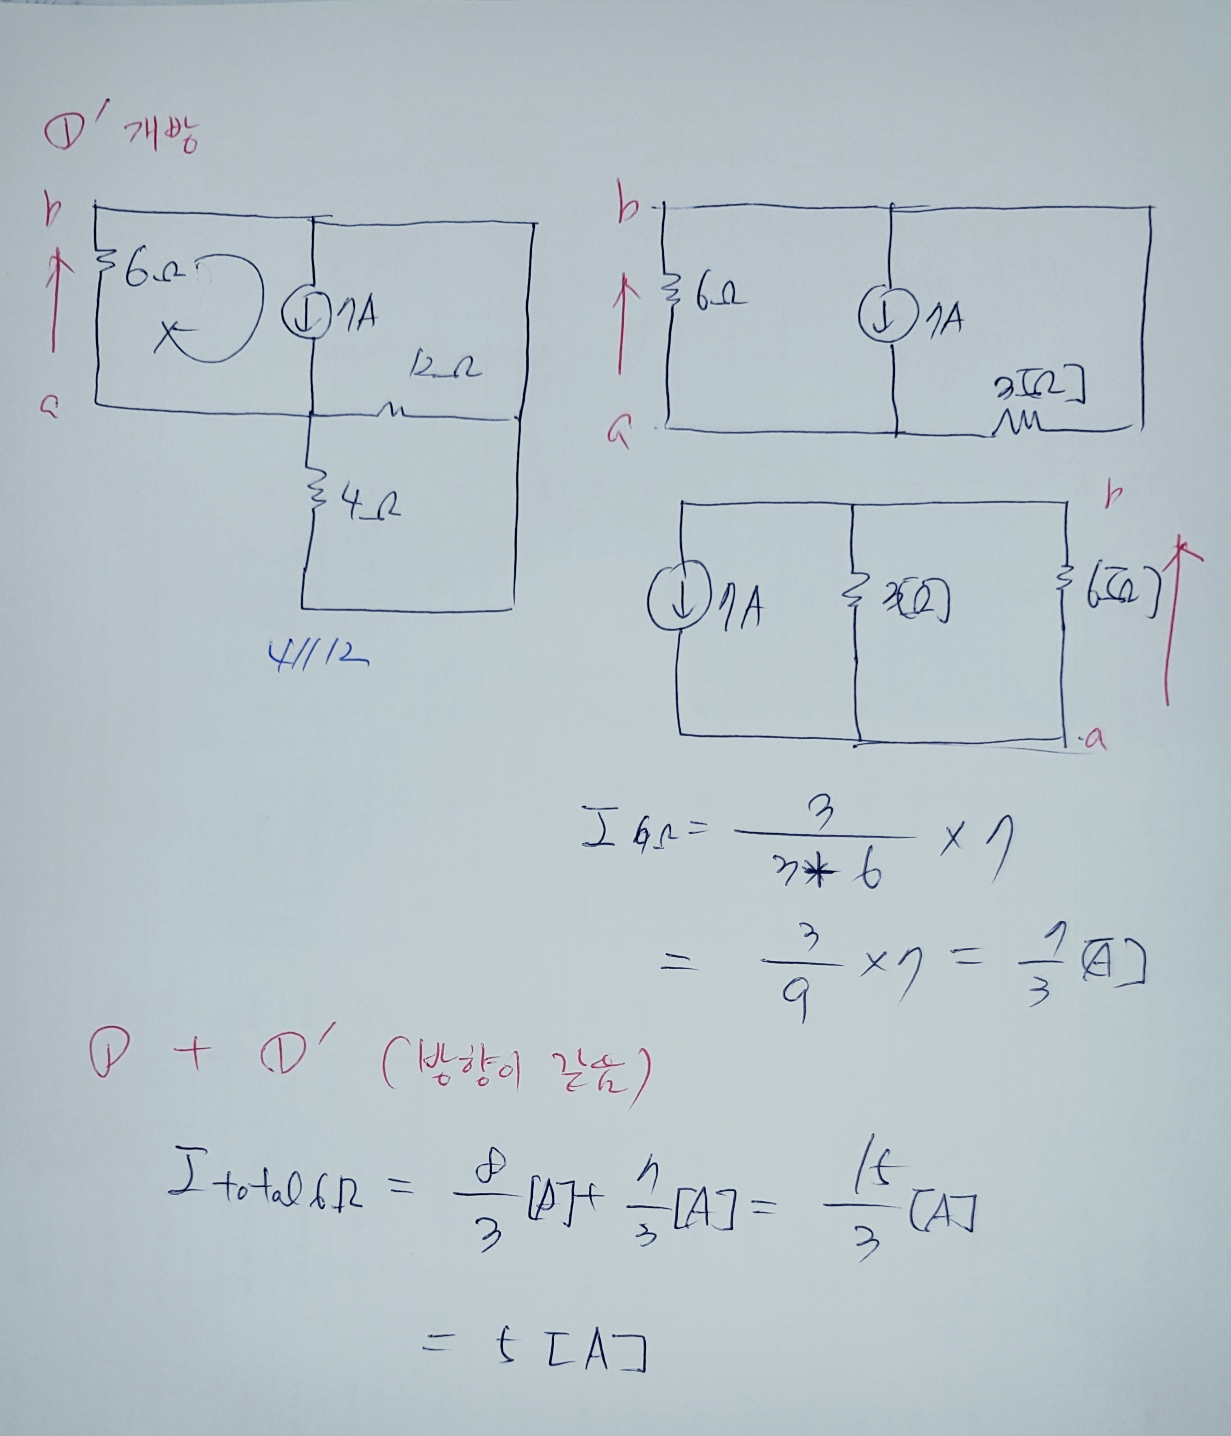 ①′ 개방
b
6Ω
7A
12Ω
a
4Ω
4//12
b
6Ω
7A
3[Ω]
a
b
7A
3[Ω]
6[Ω]
a
I 6Ω = 3 / 3+6 × 7
= 3/9 × 7 = 7/3 [A]
① + ①′ (방향이 같음)
I total 6Ω = 8/3 [A] + 7/3 [A] = 15/3 [A]
= 5 [A]